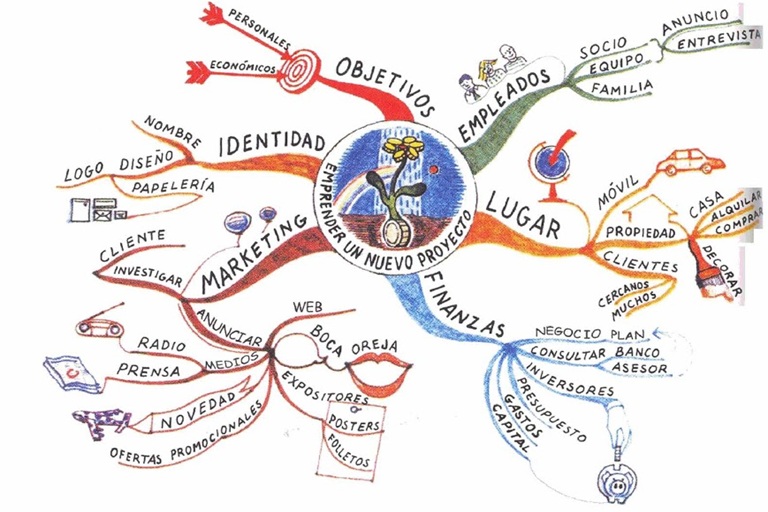 EMPRENDER UN NUEVO PROYECTO
OBJETIVOS
PERSONALES
ECONÓMICOS
EMPLEADOS
SOCIO
EQUIPO
ANUNCIO
ENTREVISTA
FAMILIA
LUGAR
MÓVIL
PROPIEDAD
CASA
ALQUILAR
COMPRAR
DECORAR
CLIENTES
CERCANOS
MUCHOS
FINANZAS
NEGOCIO PLAN
CONSULTAR BANCO
ASESOR
INVERSORES
PRESUPUESTO
GASTOS
CAPITAL
MARKETING
CLIENTE
INVESTIGAR
ANUNCIAR
WEB
BOCA OREJA
MEDIOS
RADIO
PRENSA
EXPOSITORES
POSTERS
FOLLETOS
NOVEDAD
OFERTAS PROMOCIONALES
IDENTIDAD
NOMBRE
DISEÑO
LOGO
PAPELERÍA